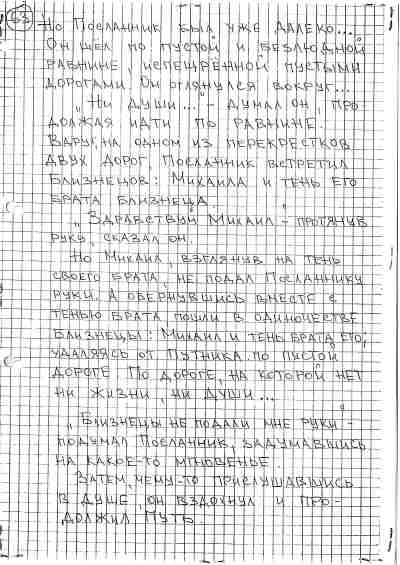 63
Но Посланник был уже далеко...
Он шёл по пустой и безлюдной
равнине, испещрённой пустыми
дорогами. Он оглянулся вокруг...
„Ни души...“ – думал он, про
должая идти по равнине.
Вдруг, на одном из перекрёстков
двух дорог, Посланник встретил
близнецов: Михаила и тень его
брата близнеца.
„Здравствуй Михаил“ – протянув
руку, сказал он.
Но Михаил, взглянув на тень
своего брата, не подал Посланнику
руки. А обернувшись вместе с
тенью брата пошли в одиночестве
близнецы: Михаил и тень брата его,
удаляясь от Путника по пустой
дороге По дороге, на которой нет
ни жизни, ни души...
„Близнецы не подали мне руки“ –
подумал Посланник, задумавшись
на какое-то мгновенье.
Затем, чему-то прислушавшись
в душе, он вздохнул и про-
должил путь.